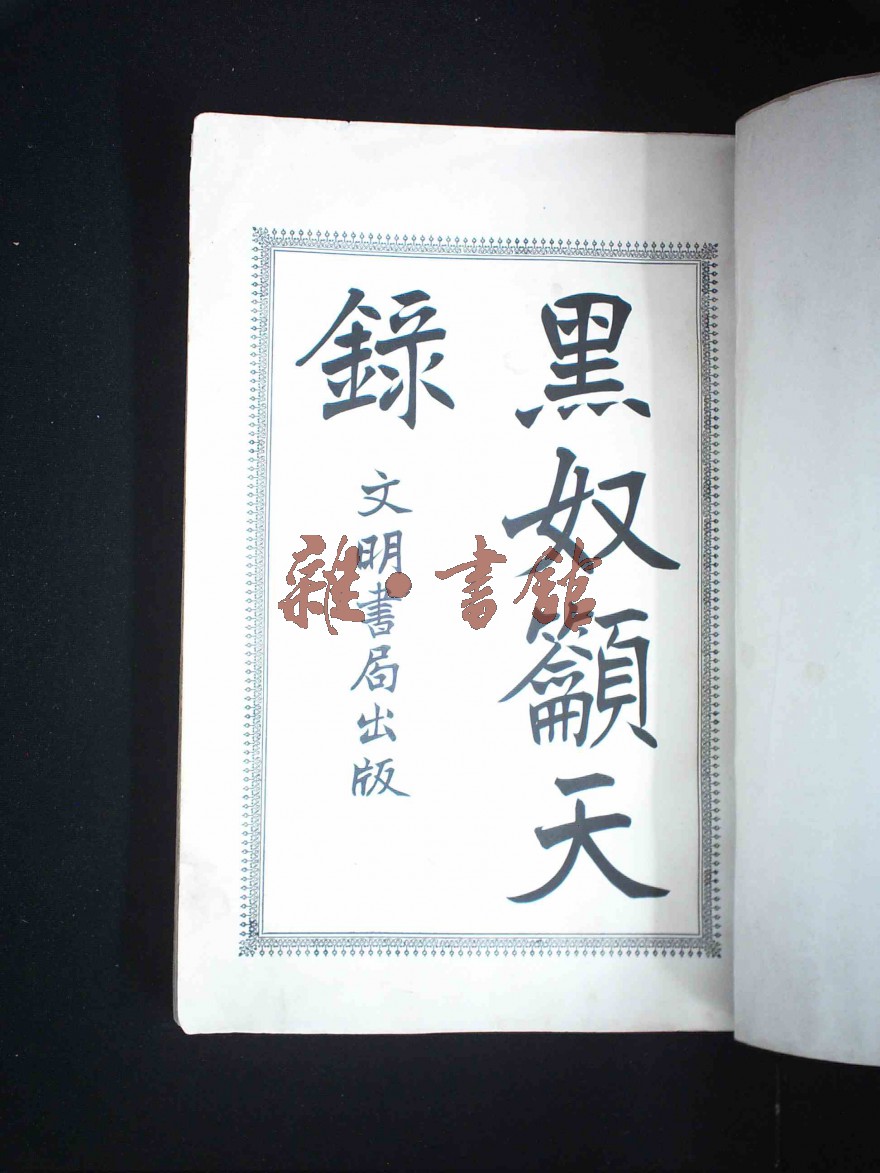 黑奴籲天
錄
文明書局出版
雜·書館